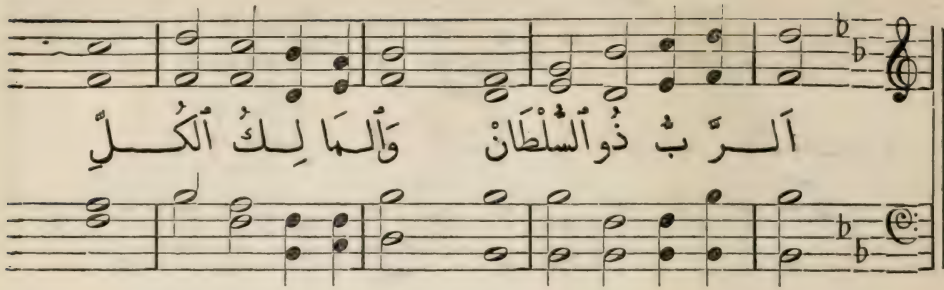 اَلــرَّ بُّ ذُو ٱلسُّلْطَانْ وَٱلـمَا لِـكُ ٱلْكُـــلِّ